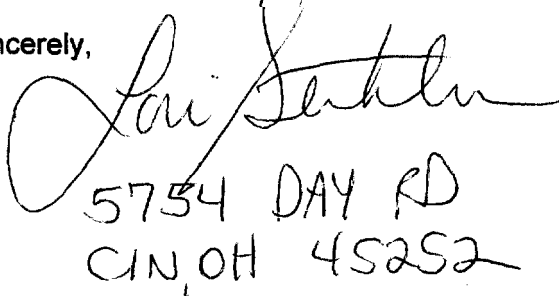 ncerely,
Lori
5754 DAY RD
CIN, OH 45252